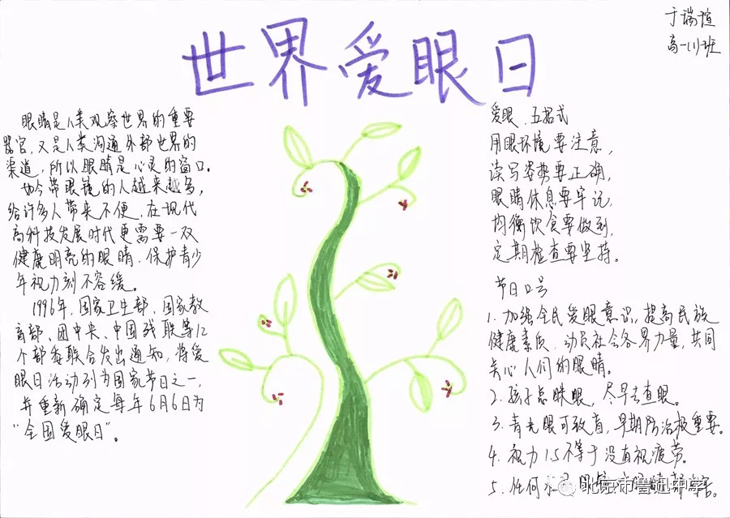 于瑞瑄
高一(1)班
世界爱眼日
眼睛是人类观察世界的重要
器官,又是人类沟通外部世界的
渠道,所以眼睛是心灵的窗口.
如今带眼镜的人越来越多,
给许多人带来不便,在现代
高科技发展时代更需要一双
健康明亮的眼睛.保护青少
年视力刻不容缓。
1996年,国家卫生部、国家教
育部、团中央、中国残联等12
个部委联合发出通知,将爱
眼日活动列为国家节日之一,
并重新确定每年6月6日为
“全国爱眼日”。
爱眼五招式
用眼环境要注意,
读写姿势要正确,
眼睛休息要牢记,
均衡饮食要做到,
定期检查要坚持。
节日口号
1.加强全民爱眼意识,提高民族
健康素质,动员社会各界力量,共同
关心人们的眼睛。
2.孩子总眯眼,尽早去查眼。
3.青光眼可致盲,早期防治极重要。
4.视力1.5不等于没有视疲劳。
5.任何
北京市鲁迅中学